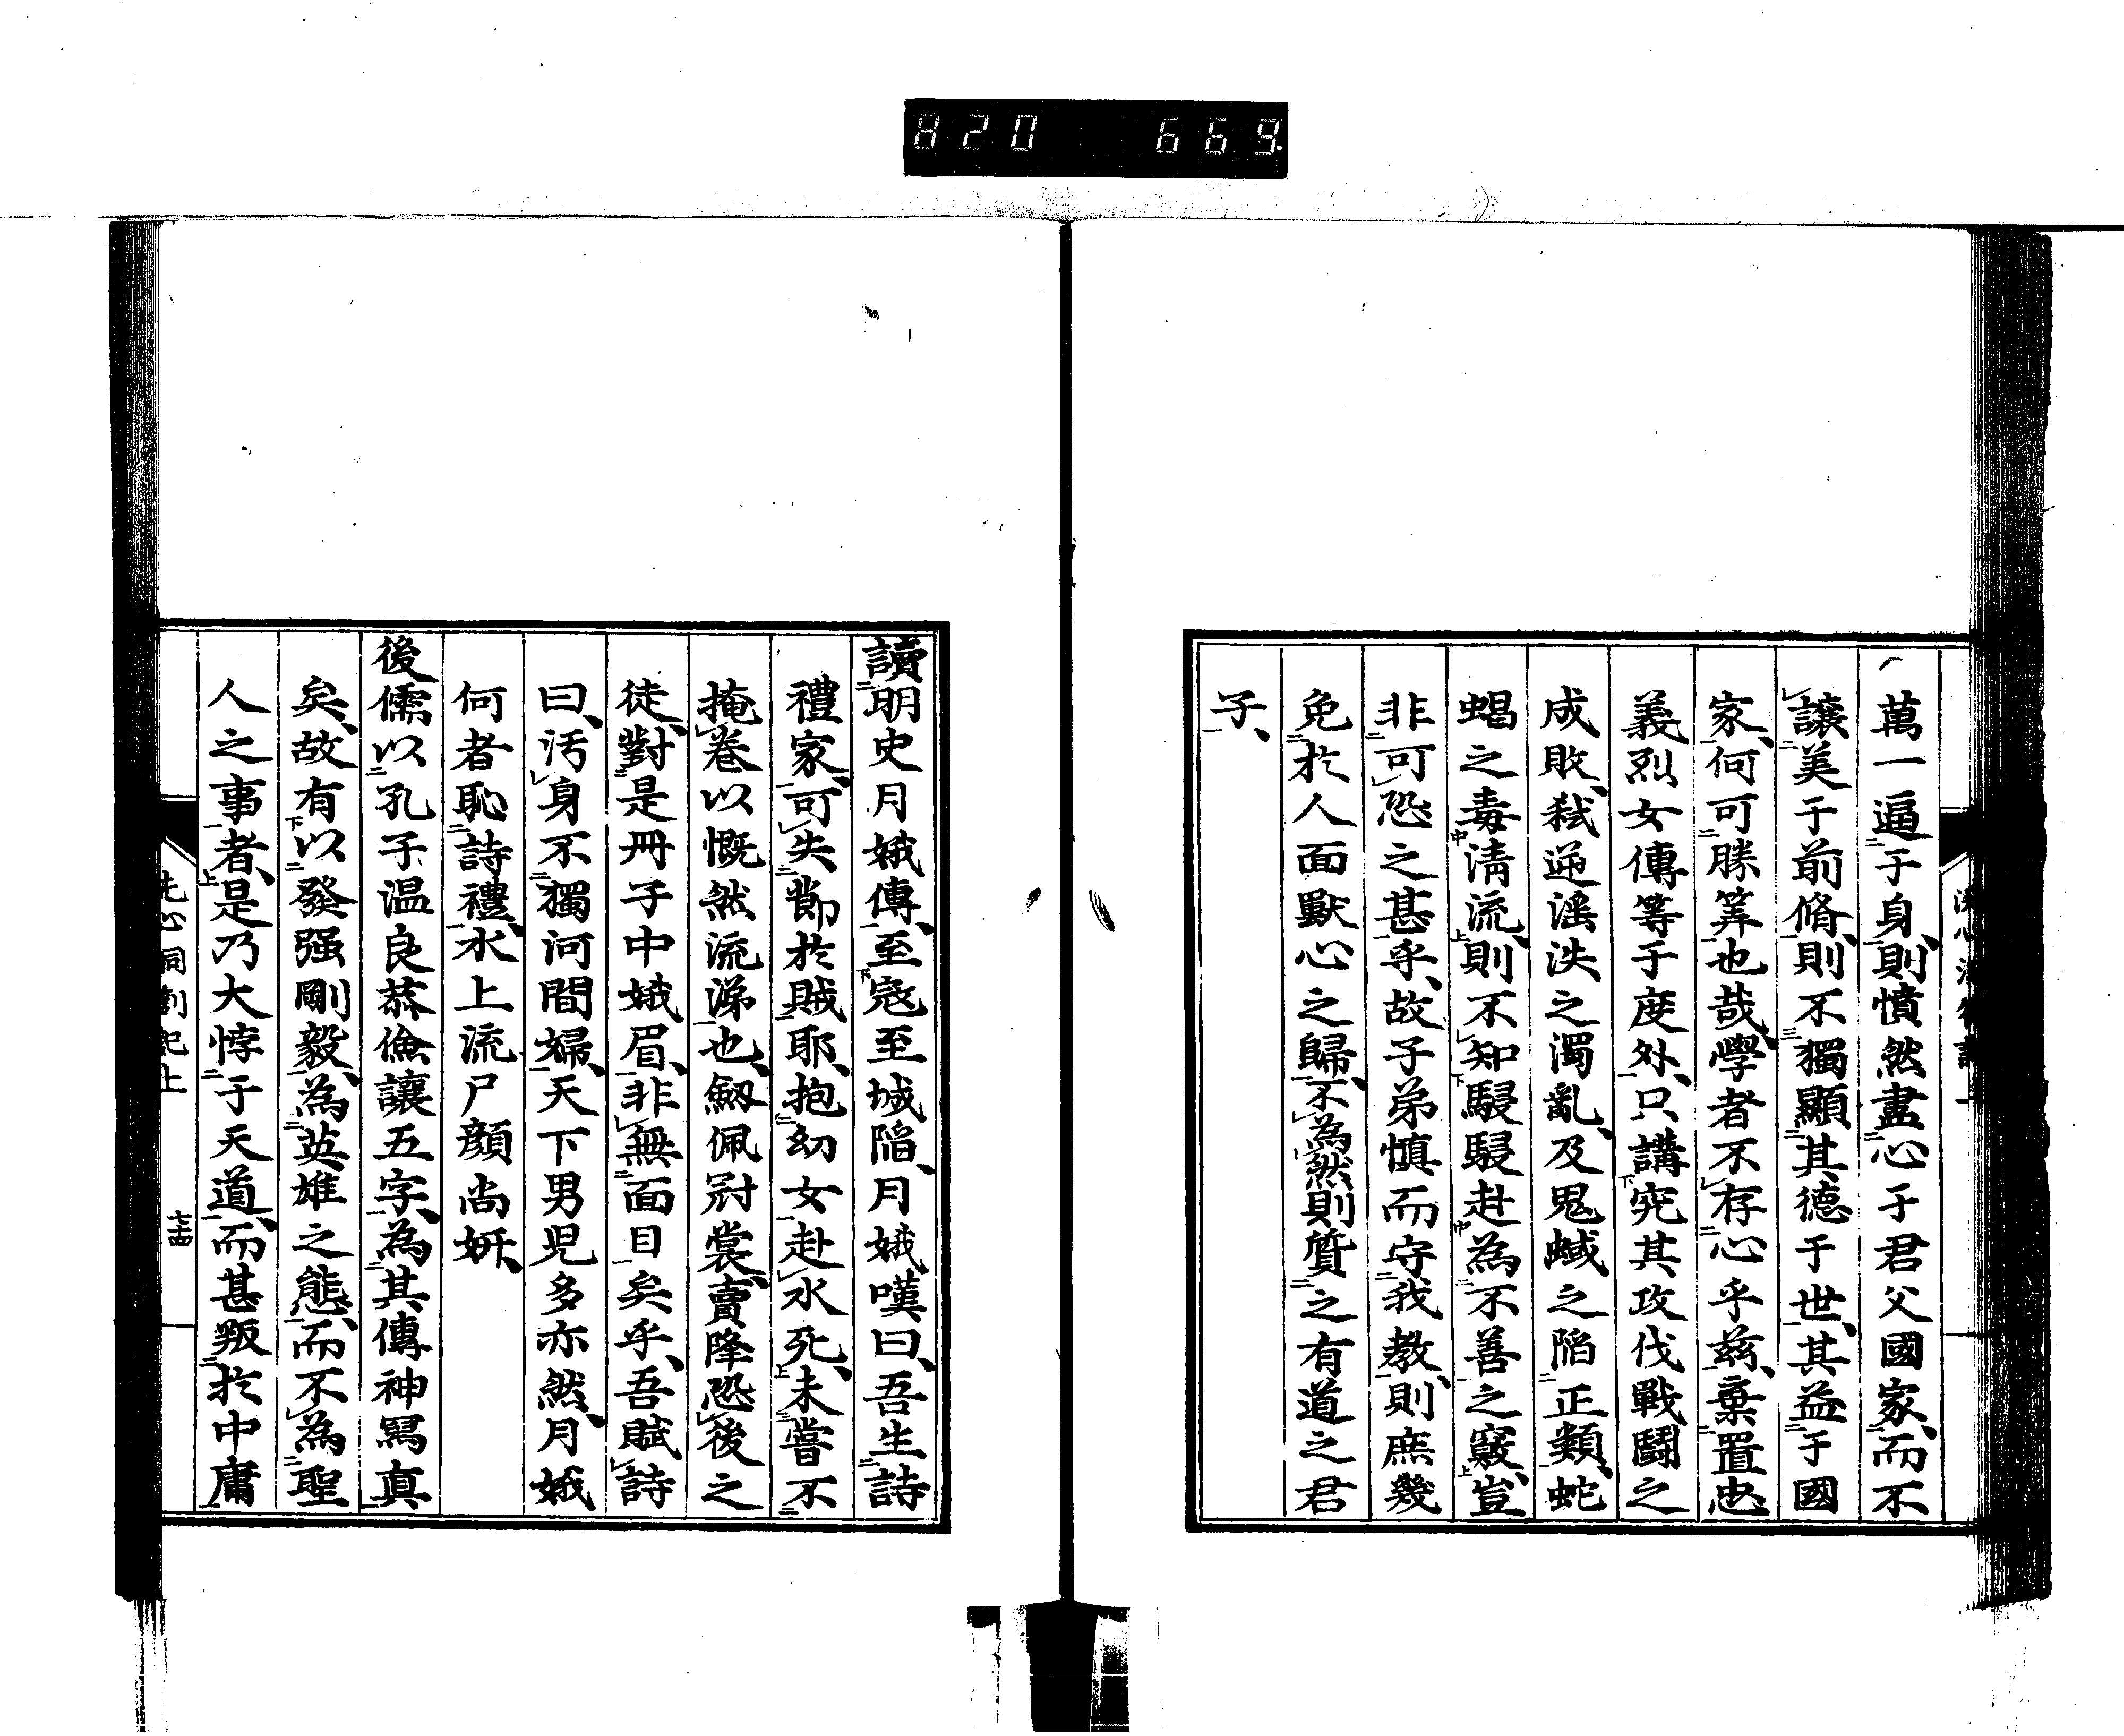 820 669
萬一逼于身、則憤然盡心于君父國家、而不
讓美于前脩、則不獨顯其德于世、其益于國
家、何可勝筭也哉、學者不存心乎茲、棄置忠
義烈女傳等于度外、只講究其攻伐戰鬪之
成敗、弑逆滛泆之濁亂、及鬼蜮之陷正類、蛇
蝎之毒清流、則不知駸駸赴為不善之竅、豈
非可恐之甚乎、故子弟慎而守我教、則庶幾
免於人面獸心之歸、不為然則質之有道之君
子、
讀明史月娥傳、至寇至城陷、月娥嘆曰、吾生詩
禮家、可失節於賊耶、抱幼女赴水死、未嘗不
掩卷以慨然流涕也、劔佩冠裳、賣降恐後之
徒、對是冊子中娥眉、非無面目矣乎、吾賦詩
曰、汚身不獨河間婦、天下男児多亦然、月娥
何者恥詩禮、水上流尸顔尚妍、
後儒以孔子温良恭儉讓五字、為其傳神冩真
矣、故有以發强剛毅、為英雄之態、而不為聖
人之事者、是乃大悖于天道、而甚叛於中庸
洗心洞劄記上
七十四